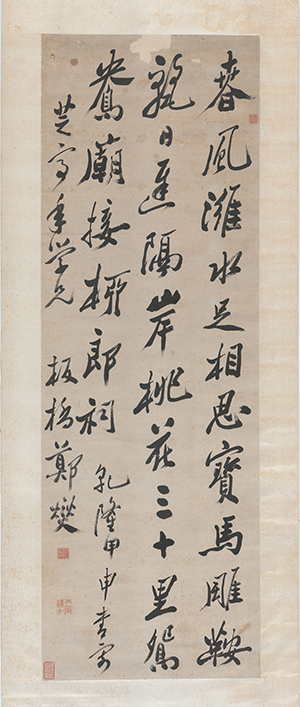 春風濰水足相思寶馬雕鞍
日遲隔岸桃花三十里鴛
鴦廟接柳郎祠 乾隆甲申書寄
芝年学兄 板橋鄭燮